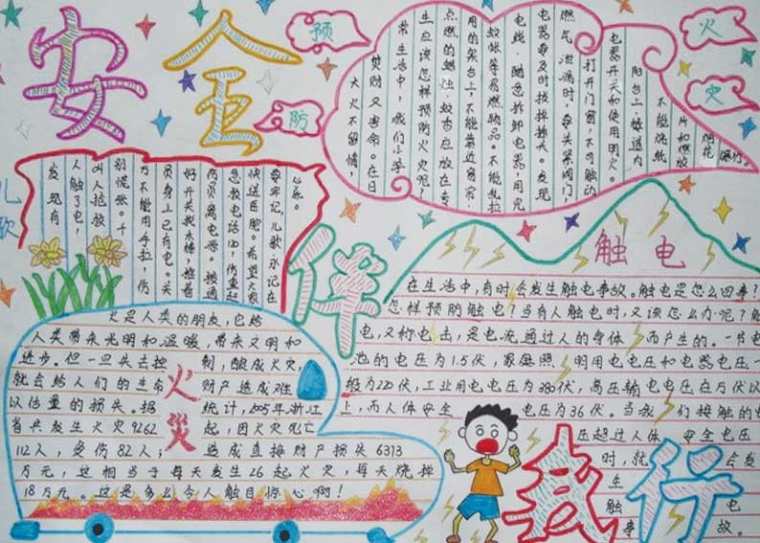 安全
预防
火灾
大火不留情
焚财又害命。在日
常生活中,我们小学
生应该怎样预防火灾呢?
点燃的蜡烛、蚊香应放在专
用的架台上,不能靠近窗帘、
蚊帐等易燃物品。不能乱拉
电线,随意拆卸电器,用完
电器要及时拔掉插头。发现
燃气泄漏时,要关紧阀门,
打开门窗,不可触动
电器开关和使用明火。
阳台上、楼道内
不能烧纸
片和燃放
烟花
爆竹。
儿歌
发现有
人触了电,
叫人抢救
别慌张。千
万不能用手拉,伤
员身上已有电。关
好开关挑木棒,拖着
伤员离电源。接通
急救电话120,伤重赶
快送医院。希望大家
要牢记,儿歌永记在
心底。
伴
触电
在生活中,有时会发生触电事故。触电是怎么回事?
怎样预防触电?当有人触电时,又该怎么办呢?触
电,又称电击,是电流通过人的身体而产生的。一节电
池的电压为1.5伏,家庭照明用电电压和电器电压一
般为220伏,工业用电电压为380伏,高压输电电压在万伏以
上,而人体安全电压为36伏。当我们接触的电
压超过人体安全电压
时,就会发
生触电
事故。
火灾
火是人类的朋友,它给
人类带来光明和温暖,带来文明和
进步。但一旦失去控制,酿成火灾,
就会给人们的生命财产造成难
以估量的损失。据统计,2005年浙江
省共发生火灾9262起,因火灾死亡
112人,受伤82人;造成直接财产损失6373
万元,这相当于每天发生26起火灾,每天烧掉
18万元。这是多么令人触目惊心啊!
我行